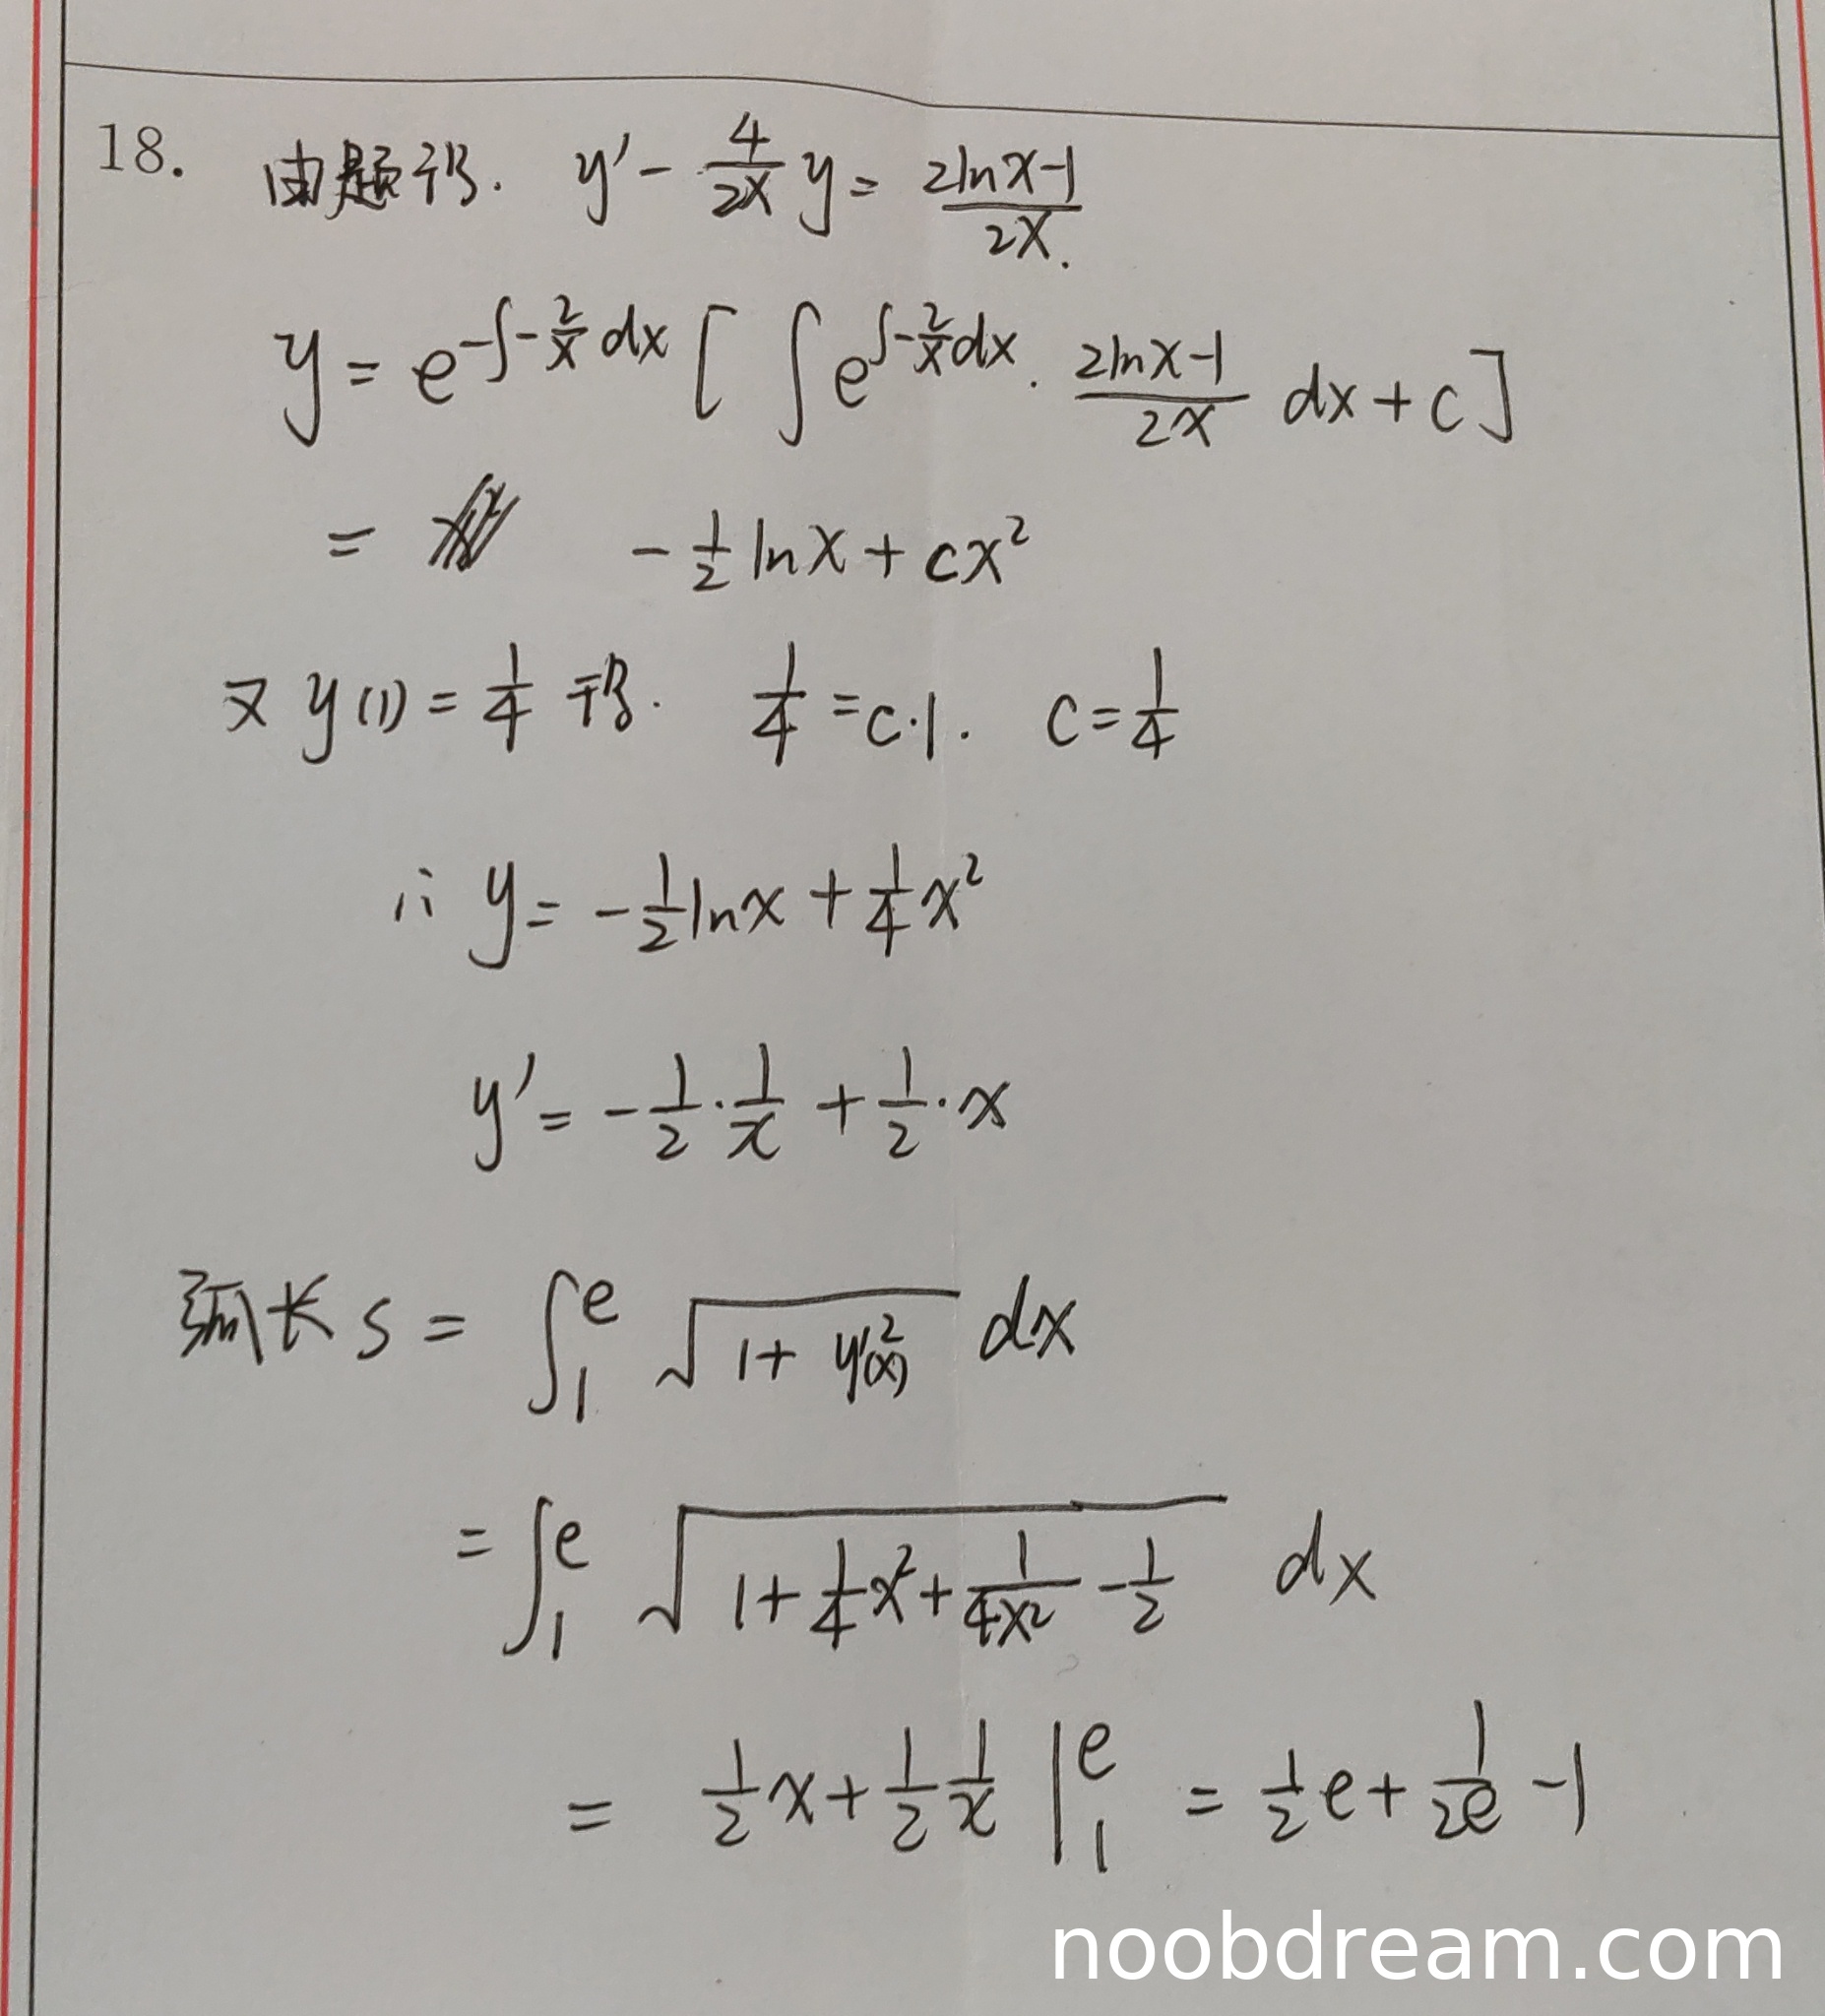 18. 由题得. y' - 4/2x y = 2lnx-1/2x.
y = e^{-∫-2/x dx} [ ∫ e^{∫-2/x dx} · 2lnx-1/2x dx + c ]
= -1/2 lnx + cx²
又 y(1) = 1/4 得. 1/4 = c·1. c = 1/4
∴ y = -1/2 lnx + 1/4 x²
y' = -1/2 · 1/x + 1/2 · x
弧长 s = ∫₁^e √(1 + y'²(x)) dx
= ∫₁^e √(1 + 1/4 x² + 1/4x² - 1/2) dx
= 1/2 x + 1/2 1/x |₁^e = 1/2 e + 1/2e - 1
noobdream.com